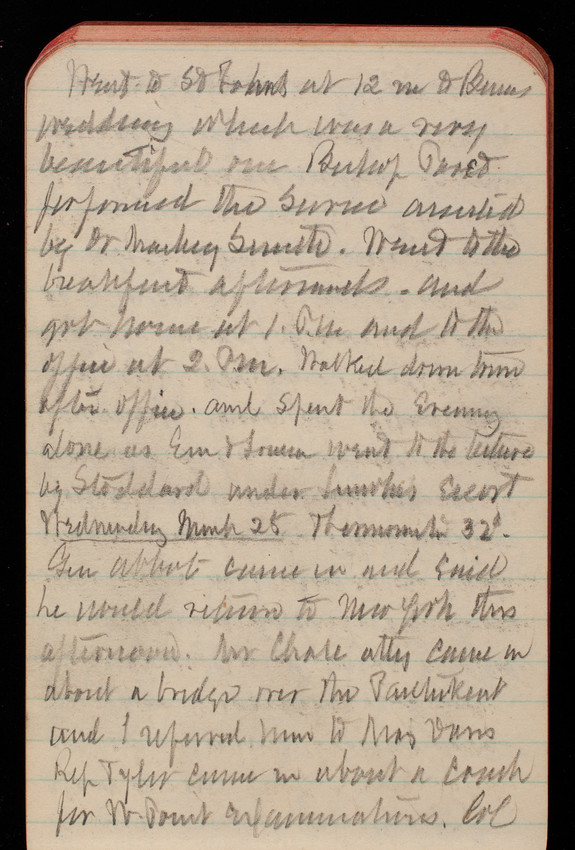 Went to St Johns at 12 m to
wedding which was a very
beautiful one Bishop Paret
performed the Service assisted
by Dr Mackay Smith. Went to the
breakfast afterwards. and
got home at 1. P.m. and to the
office at 2. P.m. Walked down town
after office. and spent the Evening
alone as Em & Louisa went to the lecture
by Stoddard under Escort
Wednesday March 25 Thermometer 32°.
Gen Abbot came in and said
he would return to New York this
afternoon. Mr Chase atty came in
about a bridge over the Pawtuket
and I referred him to Maj Davis
Rep Tyler came in about a coach
for W. Point Examinations. Col